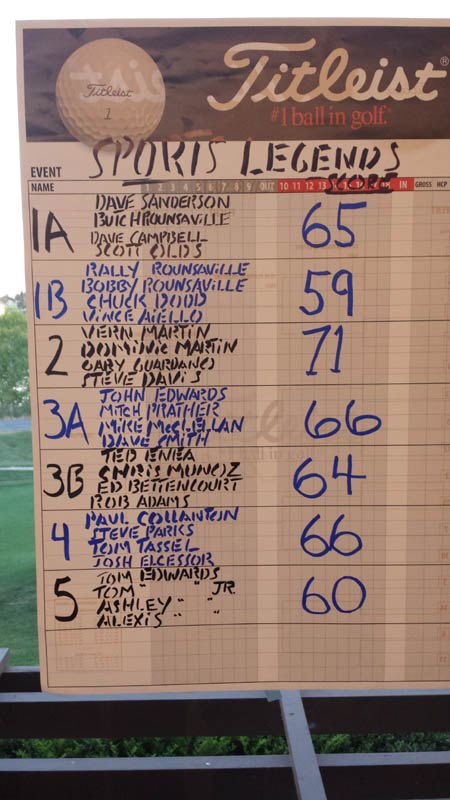 Titleist
1
Titleist®
#1 ball in golf.
EVENT SPORTS LEGENDS
NAME 1 2 3 4 5 6 7 8 9 OUT 10 11 12 13 IN GROSS HCP
SCORE
1A DAVE SANDERSON
BUTCH ROUNSAVILLE
DAVE CAMPBELL
SCOTT OLDS
65
1B RALLY ROUNSAVILLE
BOBBY ROUNSAVILLE
CHUCK DODD
VINCE AIELLO
59
2 VERN MARTIN
DOMINIC MARTIN
GARY GUARDANO
STEVE DAVIS
71
3A JOHN EDWARDS
MITCH PRATHER
MIKE McCLELLAN
DAVE SMITH
66
3B TED ENEA
CHRIS MUNOZ
ED BETTENCOURT
ROB ADAMS
64
4 PAUL COLLANTON
STEVE PARKS
TOM TASSEL
JOSH ELCESSOR
66
5 TOM EDWARDS
TOM " JR.
ASHLEY " "
ALEXIS " "
60